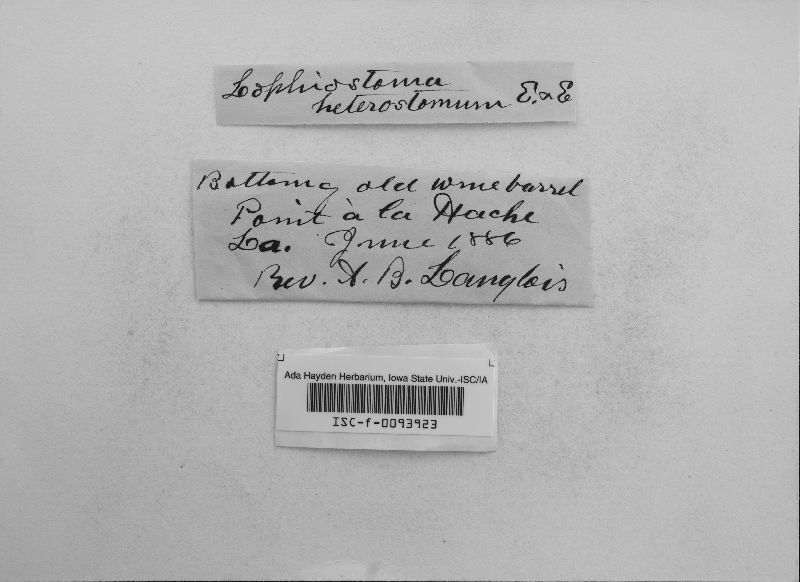 Lophiostoma
heterostomum E. & E
Bottom of old wine barrel
Point à la Hache
La. June 1886
Rev. A. B. Langlois
Ada Hayden Herbarium, Iowa State Univ.-ISC/IA
ISC-f-0093923